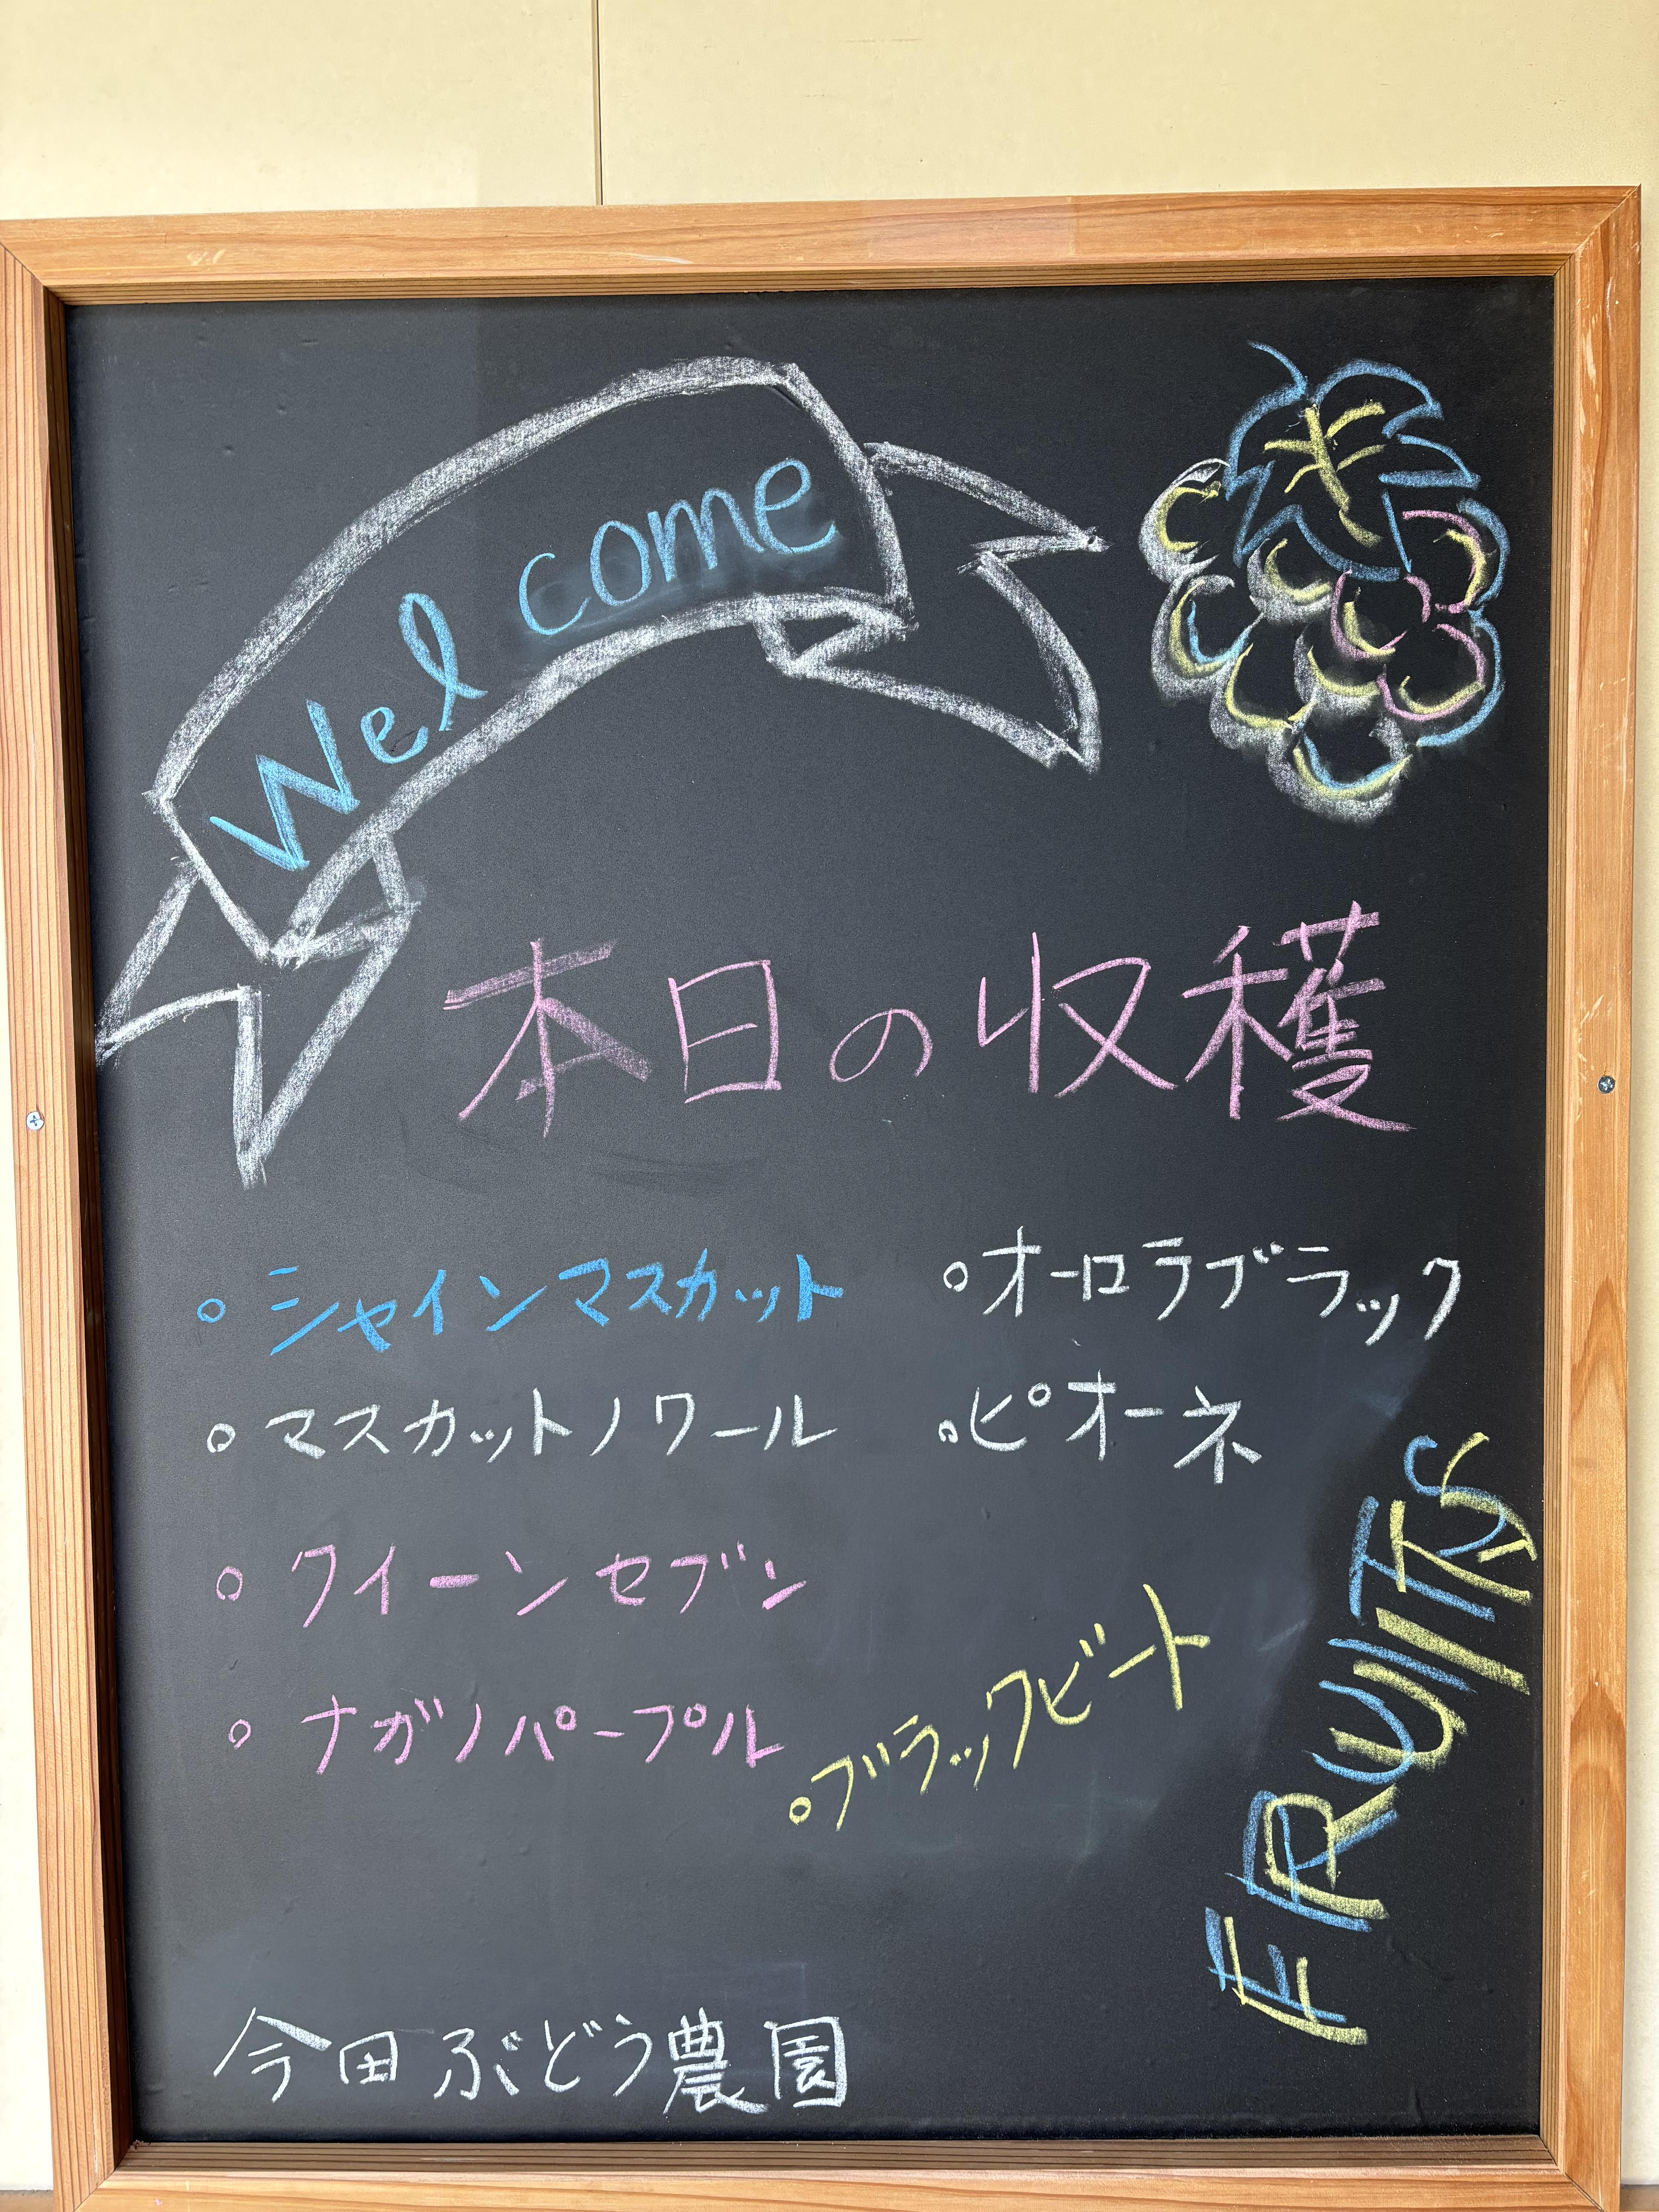 Welcome
本日の収穫
○ シャインマスカット
○ オーロラブラック
○ マスカットノワール
○ ピオーネ
○ クイーンセブン
○ ナガノパープル
○ ブラックビート
FRUITS
今田ぶどう農園